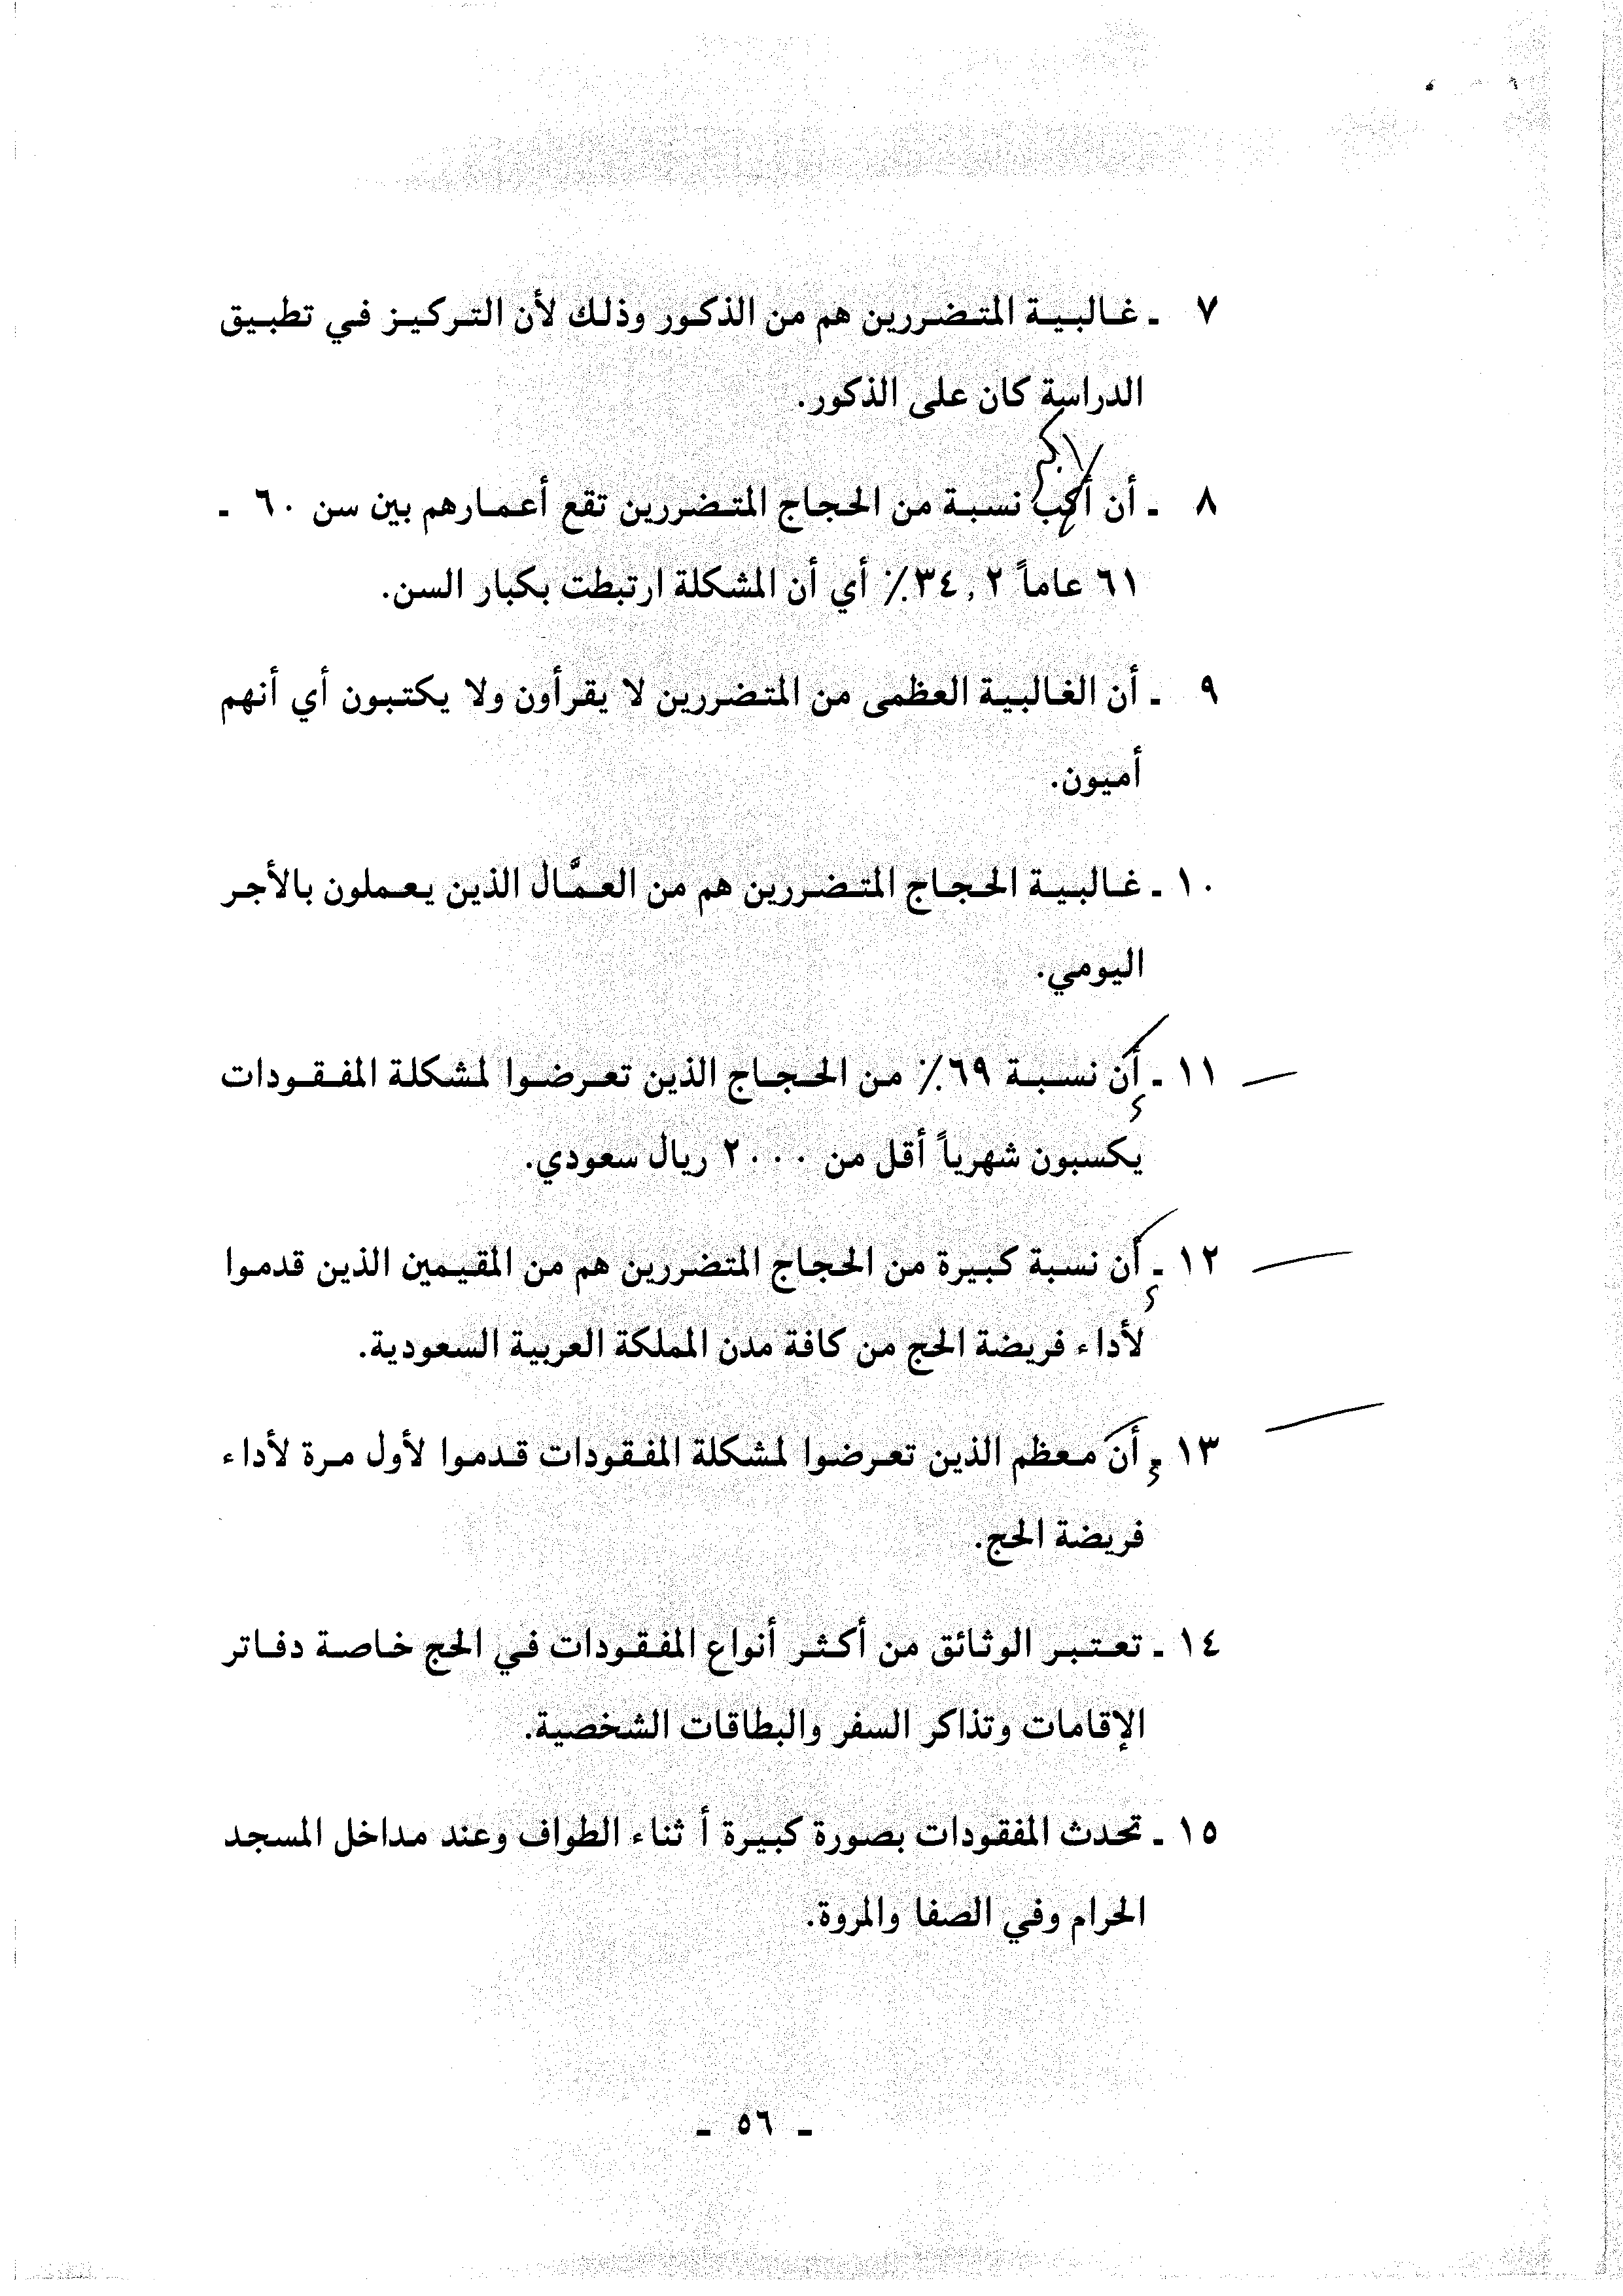 ٧ ـ غالبية المتضررين هم من الذكور وذلك لأن التركيز في تطبيق
الدراسة كان على الذكور.
٨ ـ أن أكب نسبة من الحجاج المتضررين تقع أعمارهم بين سن ٦٠ ـ
٦١ عاماً ٣٤,٢٪ أي أن المشكلة ارتبطت بكبار السن.
٩ ـ أن الغالبية العظمى من المتضررين لا يقرأون ولا يكتبون أي أنهم
أميون.
١٠ ـ غالبية الحجاج المتضررين هم من العمَّال الذين يعملون بالأجر
اليومي.
١١ ـ أن نسبة ٦٩٪ من الحجاج الذين تعرضوا لمشكلة المفقودات
يكسبون شهرياً أقل من ٢٠٠٠ ريال سعودي.
١٢ ـ أن نسبة كبيرة من الحجاج المتضررين هم من المقيمين الذين قدموا
لأداء فريضة الحج من كافة مدن المملكة العربية السعودية.
١٣ ـ أن معظم الذين تعرضوا لمشكلة المفقودات قدموا لأول مرة لأداء
فريضة الحج.
١٤ ـ تعتبر الوثائق من أكثر أنواع المفقودات في الحج خاصة دفاتر
الإقامات وتذاكر السفر والبطاقات الشخصية.
١٥ ـ تحدث المفقودات بصورة كبيرة أ ثناء الطواف وعند مداخل المسجد
الحرام وفي الصفا والمروة.
ـ ٥٦ ـ